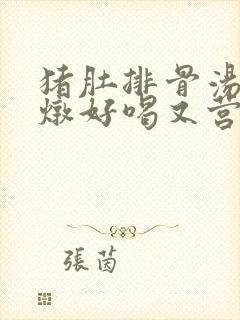 猪肚排骨汤
燉好喝又营
張茵